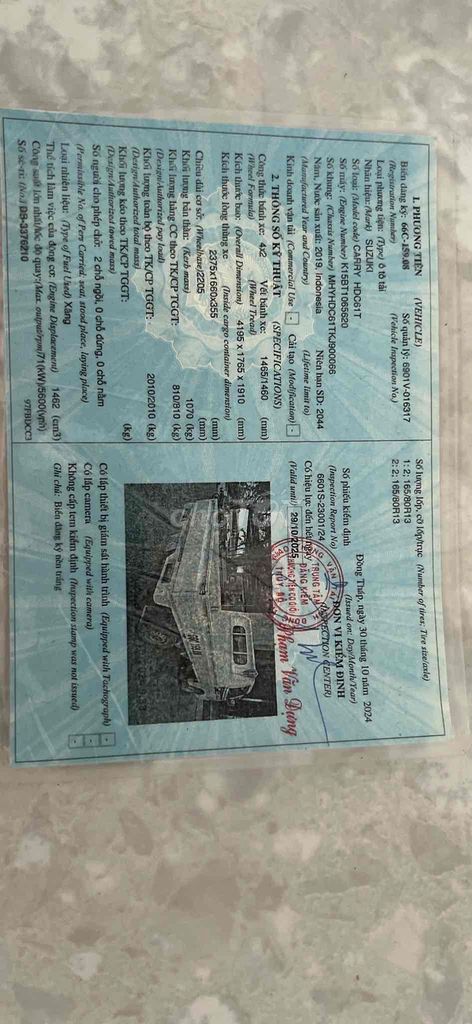 1. PHƯƠNG TIỆN (VEHICLE)
Biển đăng ký: 66C-159.08 Số quản lý: 6901V-016317
(Registration Number) (Vehicle Inspection No.)
Loại phương tiện: (Type) ô tô tải
Nhãn hiệu: (Mark) SUZUKI
Số loại: (Model code) CARRY HDC61T
Số máy: (Engine Number) K15BT1065620
Số khung: (Chassis Number) MHYHDC61TKJ900066
Năm, Nước sản xuất: 2019, Indonesia Niên hạn SD: 2044
(Manufactured Year and Country) (Lifetime limit to)
Kinh doanh vận tải (Commercial Use) - Cải tạo (Modification) -
2. THÔNG SỐ KỸ THUẬT (SPECIFICATIONS)
Công thức bánh xe: 4x2 Vết bánh xe: 1465/1460 (mm)
(Wheel Formula) (Wheel Tread)
Kích thước bao: (Overall Dimension) 4195 x 1765 x 1910 (mm)
Kích thước lòng thùng xe (Inside cargo container dimension)
2375x1660x355 (mm)
Chiều dài cơ sở: (Wheelbase) 2205 (mm)
Khối lượng bản thân: (Kerb mass) 1070 (kg)
Khối lượng hàng CC theo TK/CP TGGT: 810/810 (kg)
(Design/Authorized pay load)
Khối lượng toàn bộ theo TK/CP TGGT: 2010/2010 (kg)
(Design/Authorized total mass)
Khối lượng kéo theo TK/CP TGGT: (kg)
(Design/Authorized towed mass)
Số người cho phép chở: 2 chỗ ngồi, 0 chỗ đứng, 0 chỗ nằm
(Permissible No. of Pers Carried, seat, stood place, laying place)
Loại nhiên liệu: (Type of Fuel Used) Xăng
Thể tích làm việc của động cơ: (Engine Displacement) 1462 (cm3)
Công suất lớn nhất/tốc độ quay: (Max. output/rpm) 71(kW)/5600(vph)
Số sê-ri: (No.) DB-3376210 97FBDCC3
Số lượng lốp, cỡ lốp/trục (Number of tires; Tire size/axle)
1: 2; 165/80R13
2: 2; 165/80R13
Số phiếu kiểm định Đồng Tháp, ngày 30 tháng 10 năm 2024
(Inspection Report No) (Issued on: Day/Month/Year)
6601S-23001/24 ĐƠN VỊ KIỂM ĐỊNH
Có hiệu lực đến hết ngày (INSPECTION CENTER)
(Valid until) 29/10/2025
TRUNG TÂM
ĐĂNG KIỂM
Phạm Văn Dựng
Có lắp thiết bị giám sát hành trình (Equipped with Tachograph) -
Có lắp camera (Equipped with camera) -
Không cấp tem kiểm định (Inspection stamp was not issued) -
Ghi chú: Biển đăng ký nền trắng